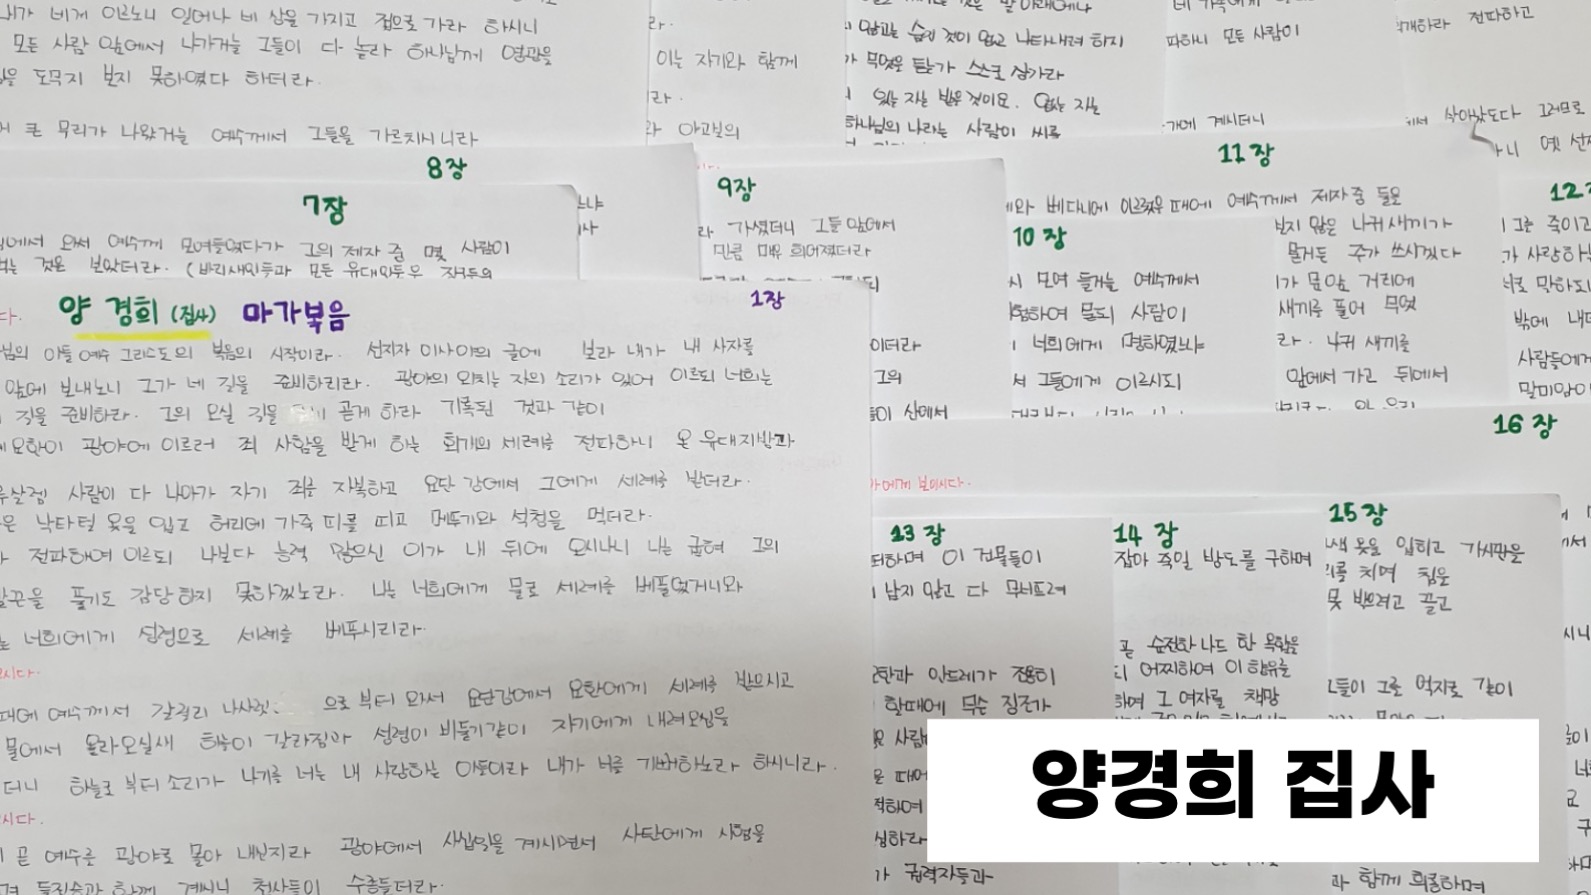 내가 네게 이르노니 일어나 네 상을 가지고 집으로 가라 하시니
모든 사람 앞에서 나가거늘 그들이 다 놀라 하나님께 영광을
을 도무지 보지 못하였다 하더라.
큰 무리가 나왔거늘 예수께서 그들을 가르치시니라
라.
이는 자기와 함께
라.
아고보의
않고는 숨긴 것이 없고 나타내려 하지
무엇을 듣는가 스스로 삼가라
있는 자는 받을 것이요. 없는 자는
하나님의 나라는 사람이 씨를
파하니 모든 사람이
가에 계시더니
개하라 전파하고
살아났도다 그러므로
니 옛 선
8장
7장
에서 와서 예수께 모여들었다가 그의 제자 중 몇 사람이
먹는 것을 보았더라. (바리새인들과 모든 유대인들은
느냐
9장
라 가셨더니 그들 앞에서
만큼 매우 희어졌더라
이더라
그의
들이 산에서
11장
와 베다니에 이르렀을 때에 예수께서 제자 중 둘을
보지 않은 나귀 새끼가
묻거든 주가 쓰시겠다
가 문 앞 거리에
새끼를 풀어 무엇
라. 나귀 새끼를
앞에서 가고 뒤에서
10장
시 모여 들거늘 예수께서
험하여 묻되 사람이
너희에게 명하였느냐
서 그들에게 이르시되
12장
그를 죽이고
가 사랑하는
너로 말하되
밖에 내
사람들에게
말미암아
다.
양경희 (집사) 마가복음 1장
님의 아들 예수 그리스도의 복음의 시작이라. 선지자 이사야의 글에 보라 내가 내 사자를
앞에 보내노니 그가 네 길을 준비하리라. 광야에 외치는 자의 소리가 있어 이르되 너희는
길을 준비하라. 그의 오실 길을 곧게 하라 기록된 것과 같이
요한이 광야에 이르러 죄 사함을 받게 하는 회개의 세례를 전파하니 온 유대지방과
루살렘 사람이 다 나아가 자기 죄를 자복하고 요단 강에서 그에게 세례를 받더라.
은 낙타털 옷을 입고 허리에 가죽 띠를 띠고 메뚜기와 석청을 먹더라.
전파하여 이르되 나보다 능력 많으신 이가 내 뒤에 오시나니 나는 굽혀 그의
끈을 풀기도 감당하지 못하겠노라. 나는 너희에게 물로 세례를 베풀었거니와
는 너희에게 성령으로 세례를 베푸시리라.
시다.
때에 예수께서 갈릴리 나사렛 으로부터 와서 요단강에서 요한에게 세례를 받으시고
물에서 올라오실새 하늘이 갈라짐과 성령이 비둘기같이 자기에게 내려오심을
더니 하늘로부터 소리가 나기를 너는 내 사랑하는 아들이라 내가 너를 기뻐하노라 하시니라.
시다.
곧 예수를 광야로 몰아 내신지라 광야에서 사십일을 계시면서 사탄에게 시험을
들짐승과 함께 계시니 천사들이 수종들더라.
16장
에게 보이시다.
13장
하며 이 건물들이
남지 않고 다 무너뜨려
요한과 안드레가 조용히
할때에 무슨 징조가
사람
때에
적하여
심하라
가 권력자들과
14장
잡아 죽일 방도를 구하며
곧 순전한 나드 한 옥합을
되 어찌하여 이 향유를
하며 그 여자를 책망
15장
색 옷을 입히고 가시관을
리를 치며 침을
못 박으려고 끌고
그들이 그를 억지로 같이
라 함께 희롱하며
양경희 집사